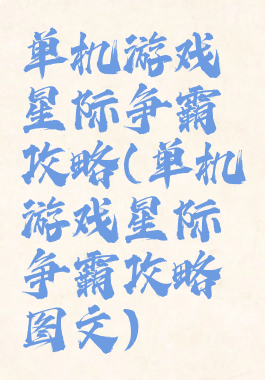 单机游戏
星际争霸
攻略(单机
游戏星际
争霸攻略
图文)